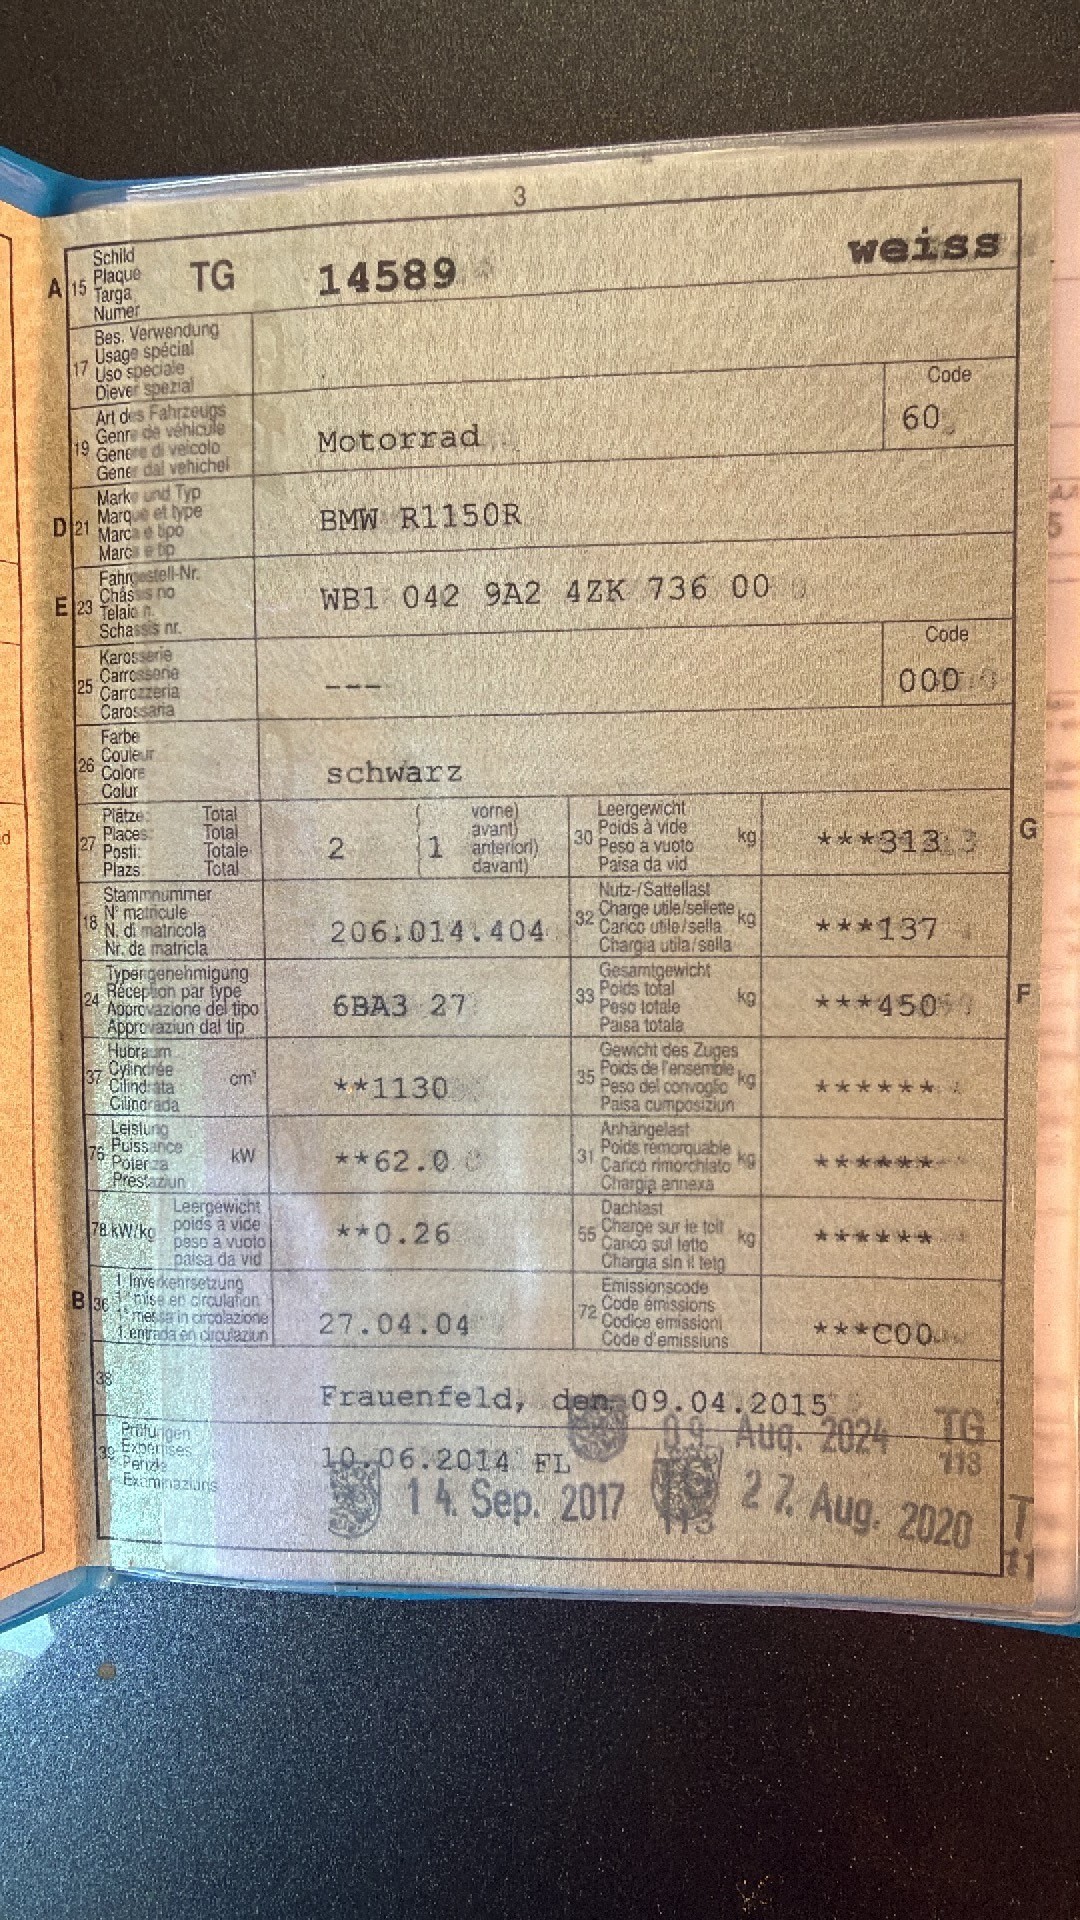 3
A 15 Schild Plaque Targa Numer TG 14589 weiss
17 Bes. Verwendung Usage spécial Uso speciale Diever spezial
19 Art des Fahrzeugs Genre de véhicule Genere di veicolo Gener dal vehichel Motorrad Code 60
D 21 Marke und Typ Marque et type Marca e tipo Marca e tip BMW R1150R
E 23 Fahrgestell-Nr. Châssis no Telaio n. Schassis nr. WB1 042 9A2 4ZK 736 00
25 Karosserie Carrosserie Carrozzeria Carossaria --- Code 000
26 Farbe Couleur Colore Colur schwarz
27 Plätze: Places: Posti: Plazs: Total Total Totale Total 2 ( 1 vorne) avant) anteriori) davant)
30 Leergewicht Poids à vide Peso a vuoto Paisa da vid kg ***313 G
18 Stammnummer N° matricule N. di matricola Nr. da matricla 206.014.404
32 Nutz-/Sattellast Charge utile/sellette Carico utile/sella Chargia utila/sella kg ***137
24 Typengenehmigung Réception par type Approvazione del tipo Approvaziun dal tip 6BA3 27
33 Gesamtgewicht Poids total Peso totale Paisa totala kg ***450 F
37 Hubraum Cylindrée Cilindrata Cilindrada cm³ **1130
35 Gewicht des Zuges Poids de l'ensemble Peso del convoglio Paisa cumposiziun kg ******
76 Leistung Puissance Potenza Prestaziun kW **62.0
31 Anhängelast Poids remorquable Carico rimorchiato Chargia annexa kg ******
78 kW/kg Leergewicht poids à vide peso a vuoto paisa da vid **0.26
55 Dachlast Charge sur le toit Carico sul tetto Chargia sin il tetg kg ******
B 36 1. Inverkehrsetzung 1re mise en circulation 1a messa in circolazione 1. entrada en circulaziun 27.04.04
72 Emissionscode Code émissions Codice emissioni Code d'emissiuns ***C00
38 Frauenfeld, den 09.04.2015
09. Aug. 2024 TG 113
39 Prüfungen Expertises Perizie Examinaziuns 10.06.2014 FL
14. Sep. 2017 113 27. Aug. 2020 T